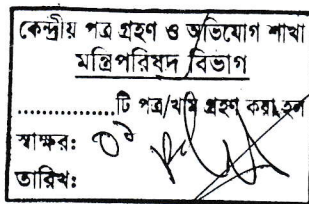 কেন্দ্রীয় পত্র গ্রহণ ও অভিযোগ শাখা
মন্ত্রিপরিষদ বিভাগ
................টি পত্র/খাম গ্রহণ করা হল
স্বাক্ষর:
তারিখ: